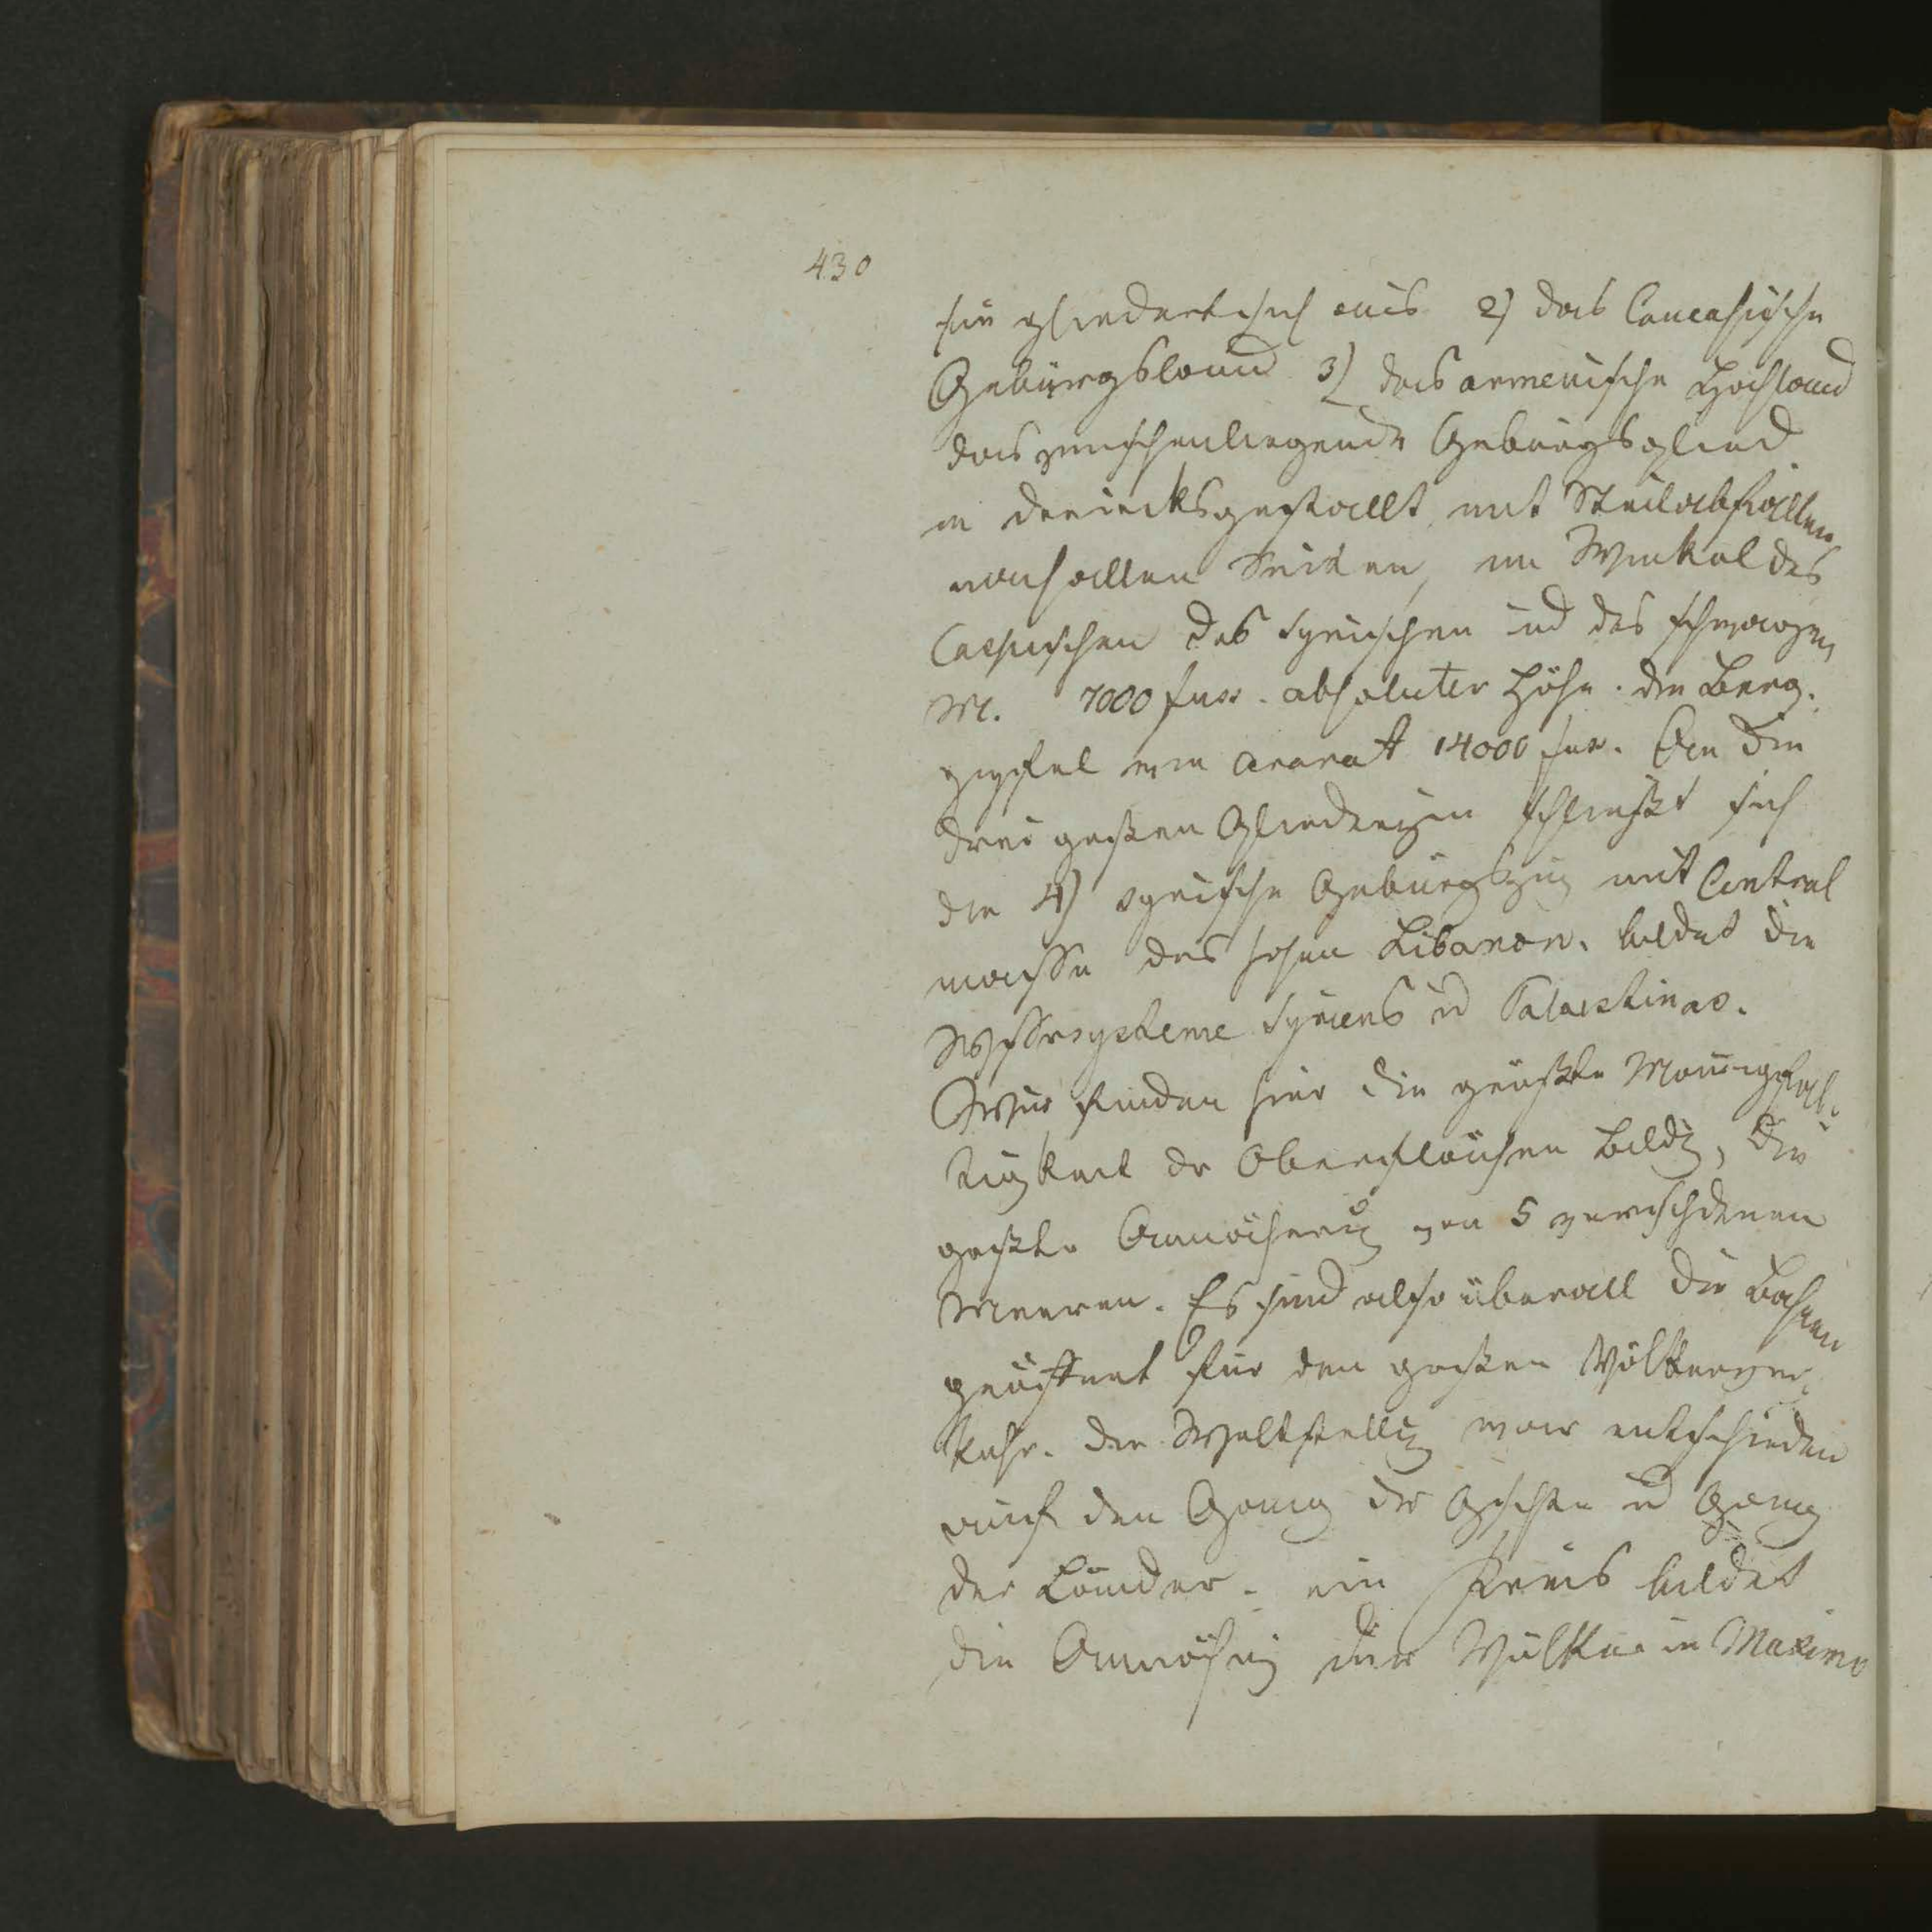 430
hier gliedert sich aus 2) das Caucasische
Gebürgsland 3) das armenische Hochland
das zwischenliegende Gebürgsglied
in dreiecksgestallt, mit Steilabfällen
nach allen Seiten, im Winkel des
Caspischen des Syrischen ud des schwarzen
M. 7000 fuss absoluter Höhe. die Berg-
gipfel wie Ararat 14000 fuss. An die
drei großen Gliederungen schließt sich
der 4) syrische Gebürgszug mit Central
masse des hohen Libanon. bildet die
Wassersysteme Syriens ud Palaestinas.
Wir finden hier die größte Mannigfal-
tigkeit der Oberflächen Bildg, die
großte Annäherung von 5 verschiedenen
Meeren. Es sind also überall die Bahnen
geöffnet für den großen Völkerver-
kehr. die Weltstellung war entschieden
auf den Gang der Gschte ud Gang
der Länder. ein Kreis bildet
die Annäherung der Völker in Maximo